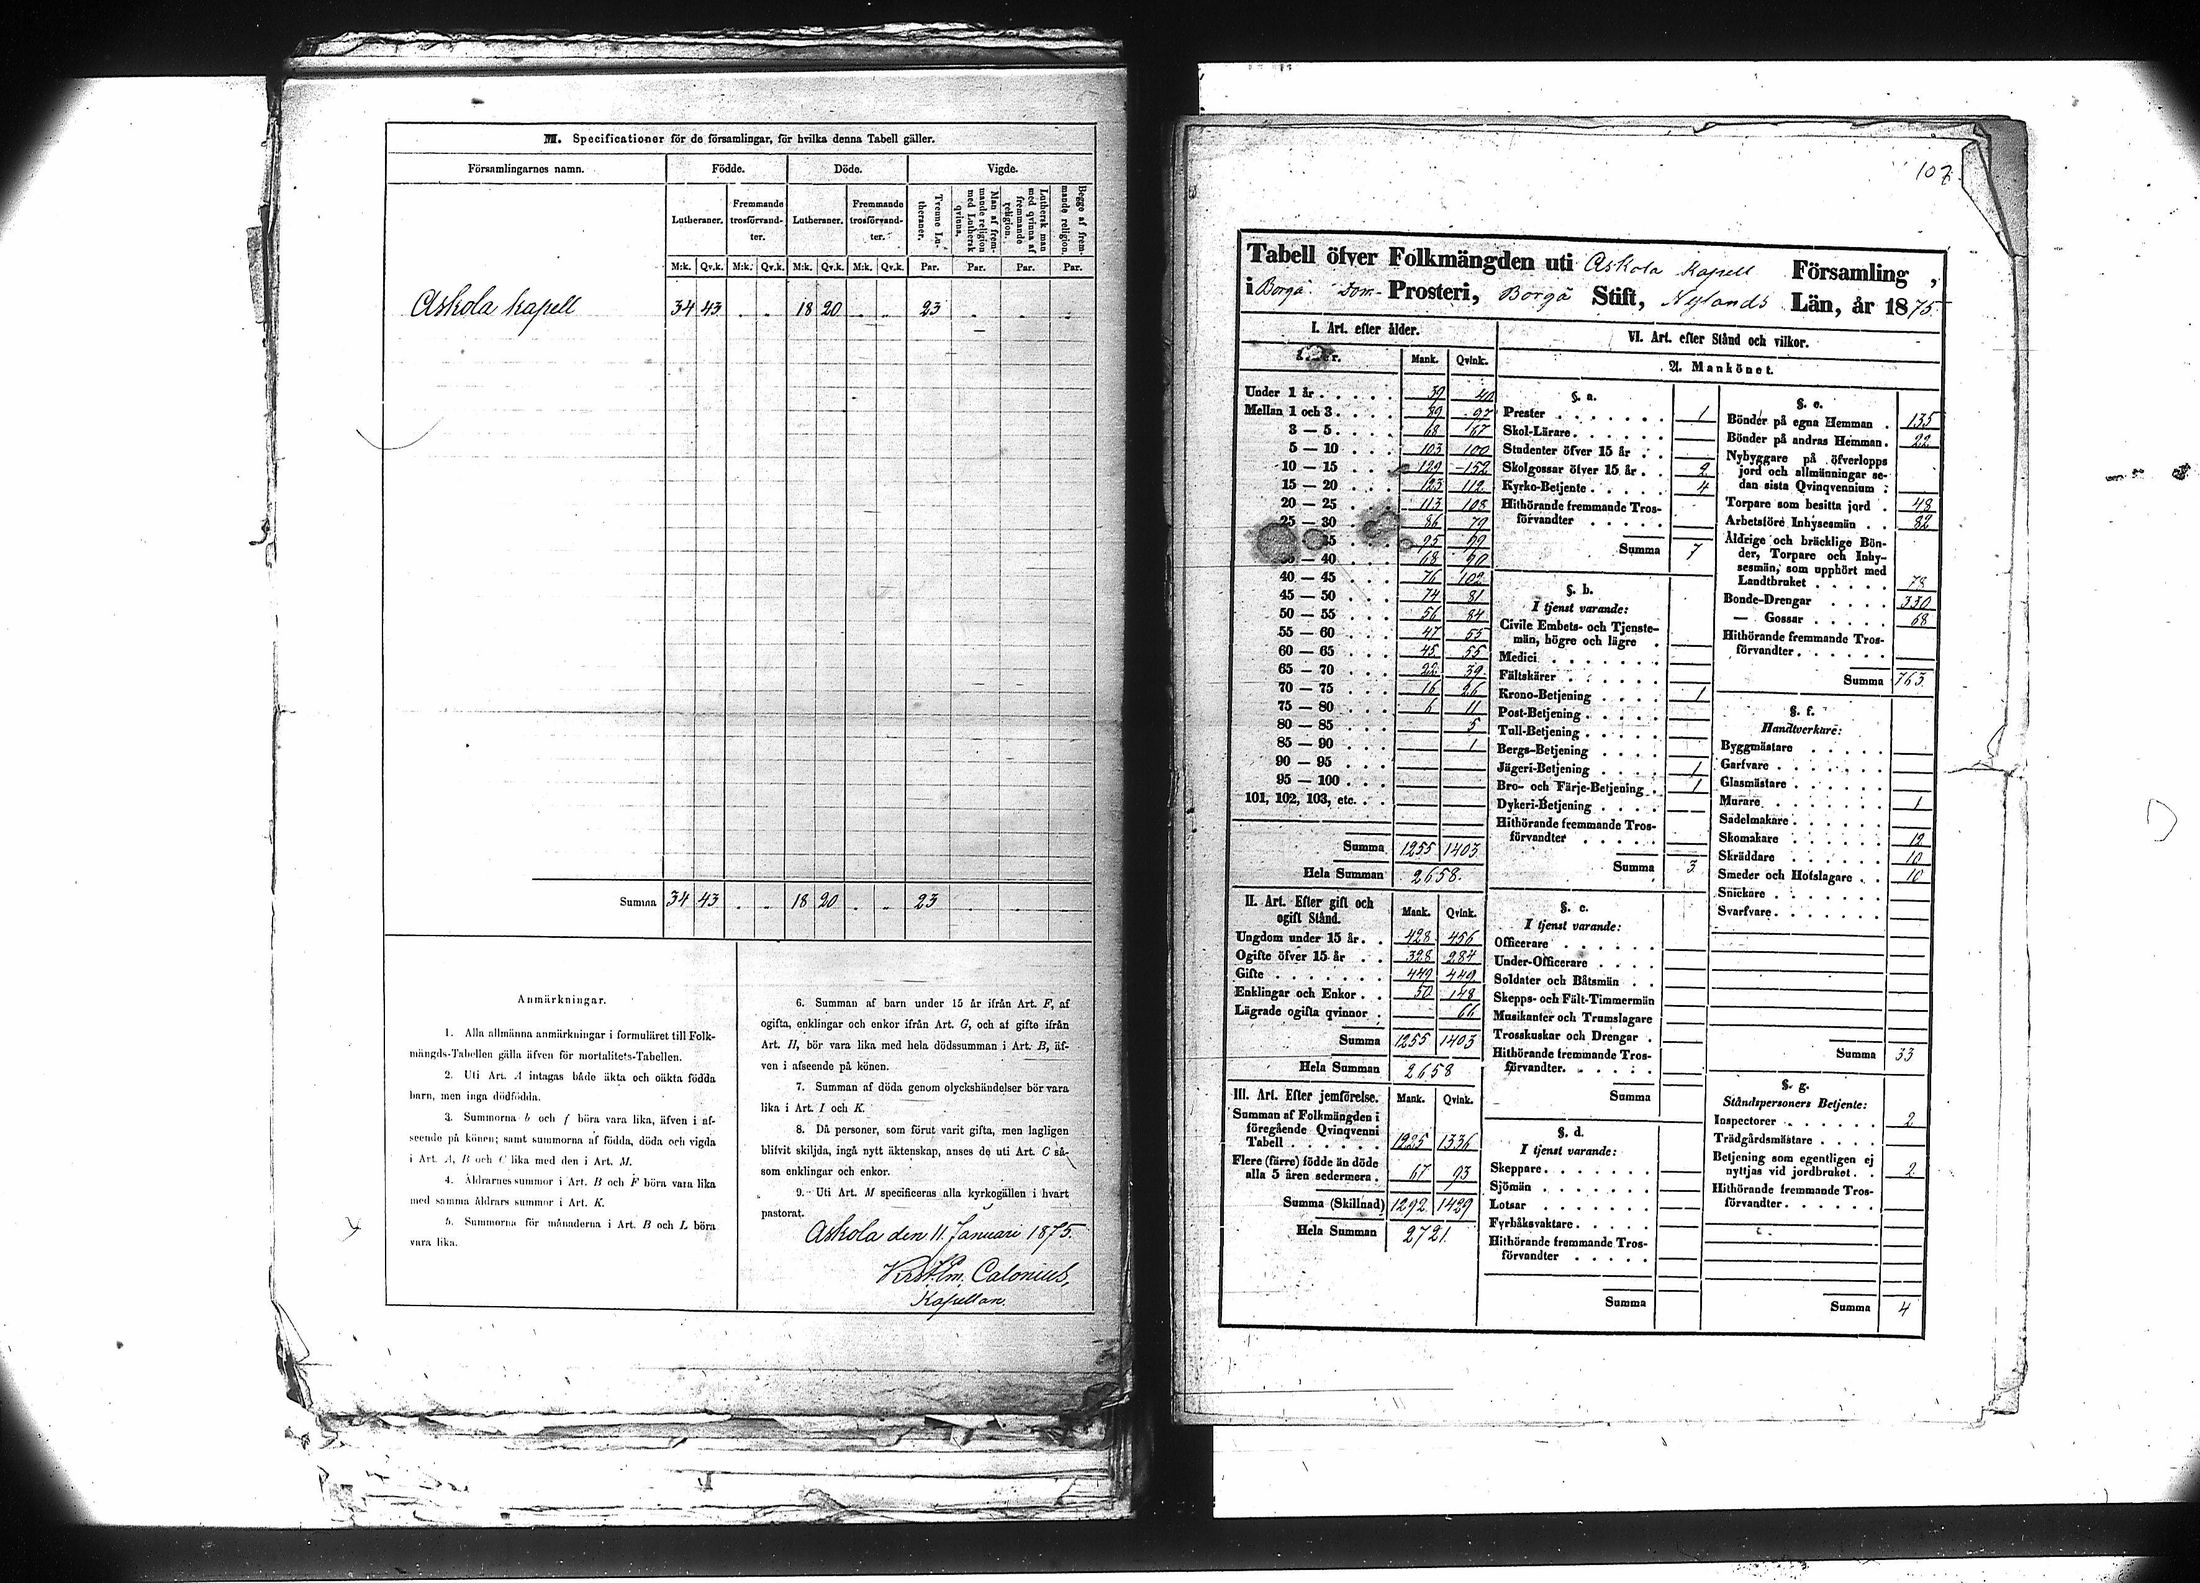 M. Specificationer för de församlingar, för hvilka denna Tabell gäller.
Församlingarnes namn. Födde. Döde. Vigde.
Lutheraner. Fremmande trosförvandter. Lutheraner. Fremmande trosförvandter. Tvenne Lutheraner. Man af fremmande religion med Luthersk qvinna. Luthersk man med qvinna af fremmande religion. Begge af fremmande religion.
M:k. Qv.k. M:k. Qv.k. M:k. Qv.k. M:k. Qv.k. Par. Par. Par. Par.
Askola kapell 34 43 18 20 23
Summa 34 43 18 20 23
Anmärkningar.
1. Alla allmänna anmärkningar i formuläret till Folk-
mängds-Tabellen gälla äfven för mortalitets-Tabellen.
2. Uti Art. A intagas både äkta och oäkta födda
barn, men inga dödfödda.
3. Summorna b och f böra vara lika, äfven i af-
seende på könen; samt summorna af födda, döda och vigda
i Art. A, B och C lika med den i Art. M.
4. Åldrarnes summor i Art. B och F böra vara lika
med samma åldrars summor i Art. K.
5. Summorna för månaderna i Art. B och L böra
vara lika.
6. Summan af barn under 15 år ifrån Art. F, af
ogifta, enklingar och enkor ifrån Art. G, och af gifte ifrån
Art. H, bör vara lika med hela dödssumman i Art. B, äf-
ven i afseende på könen.
7. Summan af döda genom olyckshändelser bör vara
lika i Art. I och K.
8. Då personer, som förut varit gifta, men lagligen
blifvit skiljda, ingå nytt äktenskap, anses de uti Art. C så-
som enklingar och enkor.
9. Uti Art. M specificeras alla kyrkogällen i hvart
pastorat.
Askola den 11. Januari 1875.
Calonius,
Kapellan.
107.
Tabell öfver Folkmängden uti Askola Kapell Församling,
i Borgå Dom- Prosteri, Borgå Stift, Nylands Län, år 1875.
I. Art. efter ålder.
Mank. Qvink.
Under 1 år 39 40
Mellan 1 och 3 89 97
3 — 5 68 67
5 — 10 103 100
10 — 15 129 152
15 — 20 123 112
20 — 25 113 108
25 — 30 86 79
35 95 99
40 68 90
40 — 45 76 102
45 — 50 74 81
50 — 55 56 84
55 — 60 47 55
60 — 65 45 55
65 — 70 22 39
70 — 75 16 26
75 — 80 6 11
80 — 85 5
85 — 90 1
90 — 95
95 — 100
101, 102, 103, etc.
Summa 1255 1403
Hela Summan 2658.
II. Art. Efter gift och
ogift Stånd. Mank. Qvink.
Ungdom under 15 år 428 456
Ogifte öfver 15 år 328 284
Gifte 449 449
Enklingar och Enkor 50 148
Lägrade ogifta qvinnor 66
Summa 1255 1403
Hela Summan 2658
III. Art. Efter jemförelse. Mank. Qvink.
Summan af Folkmängden i
föregående Qvinqvenni
Tabell 1225 1336
Flere (färre) födde än döde
alla 5 åren sedermera 67 93
Summa (Skillnad) 1292 1429
Hela Summan 2721.
VI. Art. efter Stånd och vilkor.
A. Mankönet.
§. a.
Prester 1
Skol-Lärare
Studenter öfver 15 år
Skolgossar öfver 15 år 2
Kyrko-Betjente 4
Hithörande fremmande Tros-
förvandter
Summa 7
§. b.
I tjenst varande:
Civile Embets- och Tjenste-
män, högre och lägre
Medici
Fältskärer
Krono-Betjening 1
Post-Betjening
Tull-Betjening
Bergs-Betjening
Jägeri-Betjening 1
Bro- och Färje-Betjening 1
Dykeri-Betjening
Hithörande fremmande Tros-
förvandter
Summa 3
§. c.
I tjenst varande:
Officerare
Under-Officerare
Soldater och Båtsmän
Skepps- och Fält-Timmermän
Musikanter och Trumslagare
Trosskuskar och Drengar
Hithörande fremmande Tros-
förvandter
Summa
§. d.
I tjenst varande:
Skeppare
Sjömän
Lotsar
Fyrbåksvaktare
Hithörande fremmande Tros-
förvandter
Summa
§. e.
Bönder på egna Hemman 135
Bönder på andras Hemman 22
Nybyggare på öfverlopps
jord och allmänningar se-
dan sista Qvinqvennium
Torpare som besitta jord 48
Arbetsföre Inhysesmän 82
Åldrige och bräcklige Bön-
der, Torpare och Inhy-
sesmän, som upphört med
Landtbruket 78
Bonde-Drengar 330
— Gossar 68
Hithörande fremmande Tros-
förvandter
Summa 763
§. f.
Handtverkare:
Byggmästare
Garfvare
Glasmästare
Murare 1
Sadelmakare
Skomakare 12
Skräddare 10
Smeder och Hofslagare 10
Snickare
Svarfvare
Summa 33
§. g.
Ståndspersoners Betjente:
Inspectorer 2
Trädgårdsmästare
Betjening som egentligen ej
nyttjas vid jordbruket 2
Hithörande fremmande Tros-
förvandter
Summa 4